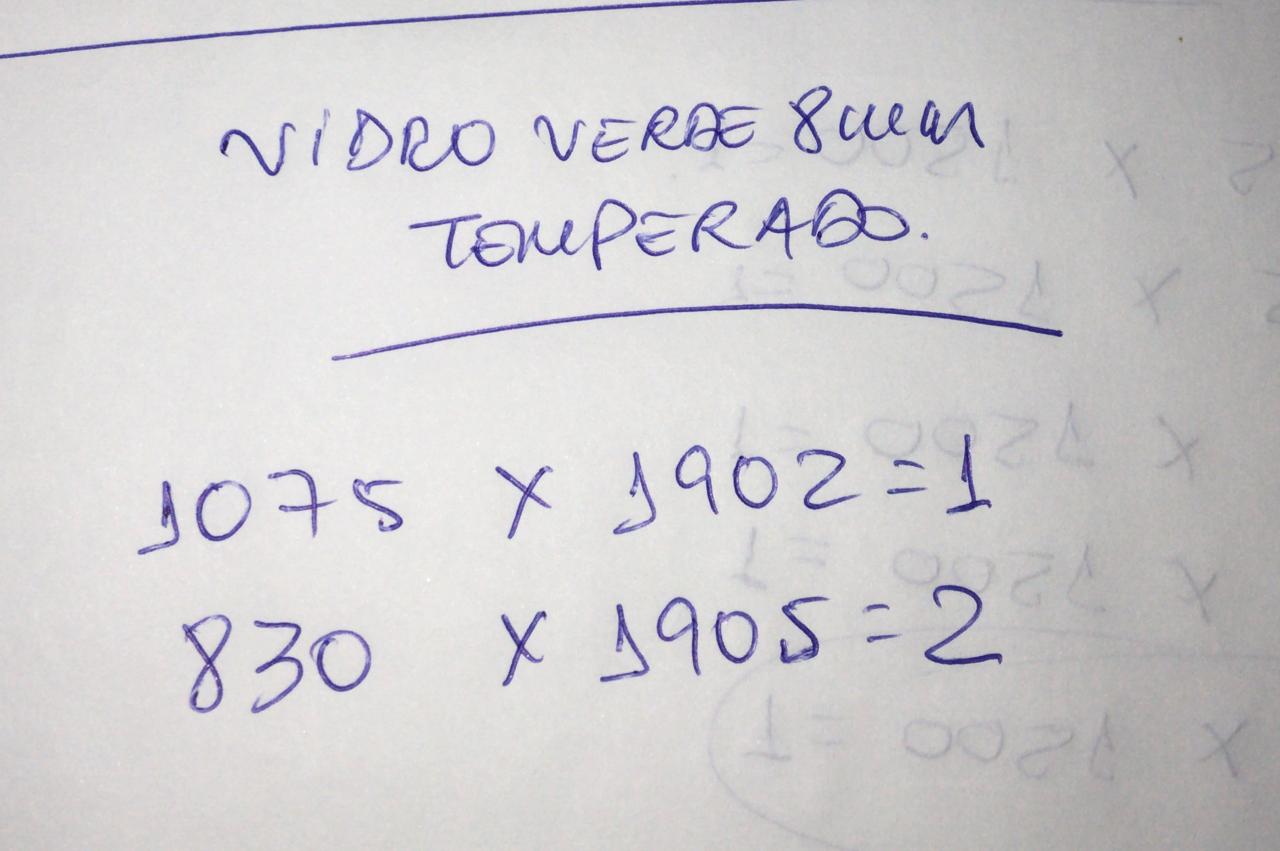 VIDRO VERDE 8mm
TEMPERADO.
1075 X 1902 = 1
830 X 1905 = 2